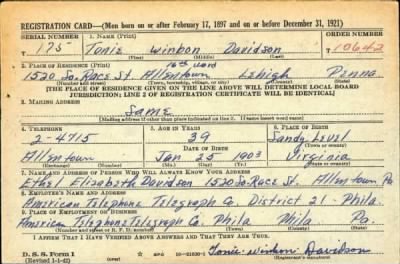 REGISTRATION CARD—(Men born on or after February 17, 1897 and on or before December 31, 1921)
SERIAL NUMBER 1. NAME (Print) ORDER NUMBER
T 175 Tonie Winbon Davidson 10642
(First) (Middle) (Last)
16th Ward
2. PLACE OF RESIDENCE (Print)
1520 So. Race St. Allentown Lehigh Penna
(Number and street) (Town, township, village, or city) (County) (State)
[THE PLACE OF RESIDENCE GIVEN ON THE LINE ABOVE WILL DETERMINE LOCAL BOARD
JURISDICTION; LINE 2 OF REGISTRATION CERTIFICATE WILL BE IDENTICAL]
3. MAILING ADDRESS
Same
[Mailing address if other than place indicated on line 2. If same insert word same]
4. TELEPHONE 5. AGE IN YEARS 6. PLACE OF BIRTH
2-4715 39 Sandy Level
DATE OF BIRTH (Town or county)
Allentown Jan 25 1903 Virginia
(Exchange) (Number) (Mo.) (Day) (Yr.) (State or country)
7. NAME AND ADDRESS OF PERSON WHO WILL ALWAYS KNOW YOUR ADDRESS
Ethel Elizabeth Davidson 1520 So. Race St. Allentown Pa
8. EMPLOYER'S NAME AND ADDRESS
American Telephone Telegraph Co. District 21 - Phila.
9. PLACE OF EMPLOYMENT OR BUSINESS
American Telephone Telegraph Co. Phila Phila Pa.
(Number and street or R. F. D. number) (Town) (County) (State)
I AFFIRM THAT I HAVE VERIFIED ABOVE ANSWERS AND THAT THEY ARE TRUE.
D. S. S. Form 1 Tonie Winbon Davidson
(Revised 1-1-42) (over) 16—21630-1 (Registrant's signature)